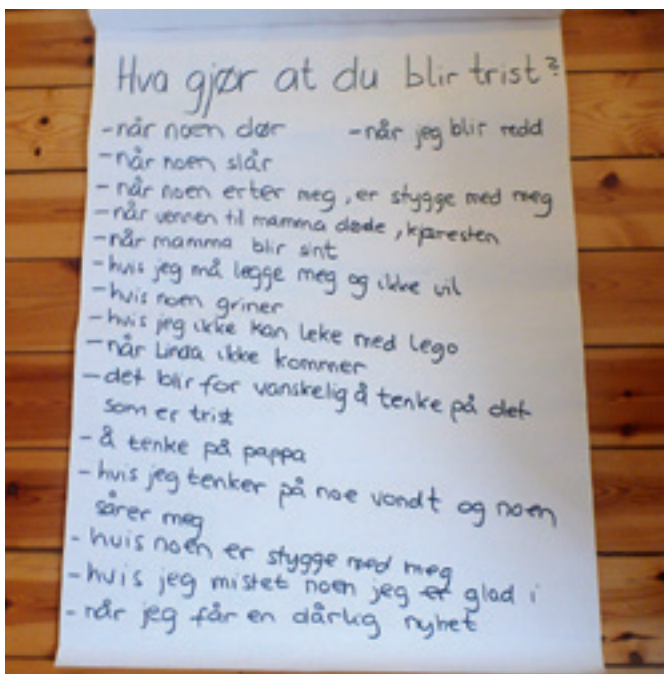 Hva gjør at du blir trist?
- når noen dør - når jeg blir redd
- når noen slår
- når noen erter meg, er stygge med meg
- når vennen til mamma døde, kjæresten
- når mamma blir sint
- hvis jeg må legge meg og ikke vil
- hvis noen griner
- hvis jeg ikke kan leke med lego
- når Linda ikke kommer
- det blir for vanskelig å tenke på det
som er trist
- å tenke på pappa
- hvis jeg tenker på noe vondt og noen
sårer meg
- hvis noen er stygge med meg
- hvis jeg mistet noen jeg er glad i
- når jeg får en dårlig nyhet